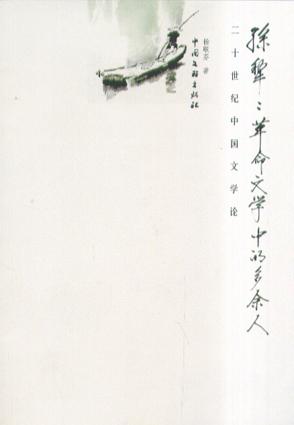 孫犁：革命文学中的多余人
二十世纪中国文学论
杨联芬 著
中国文联出版社